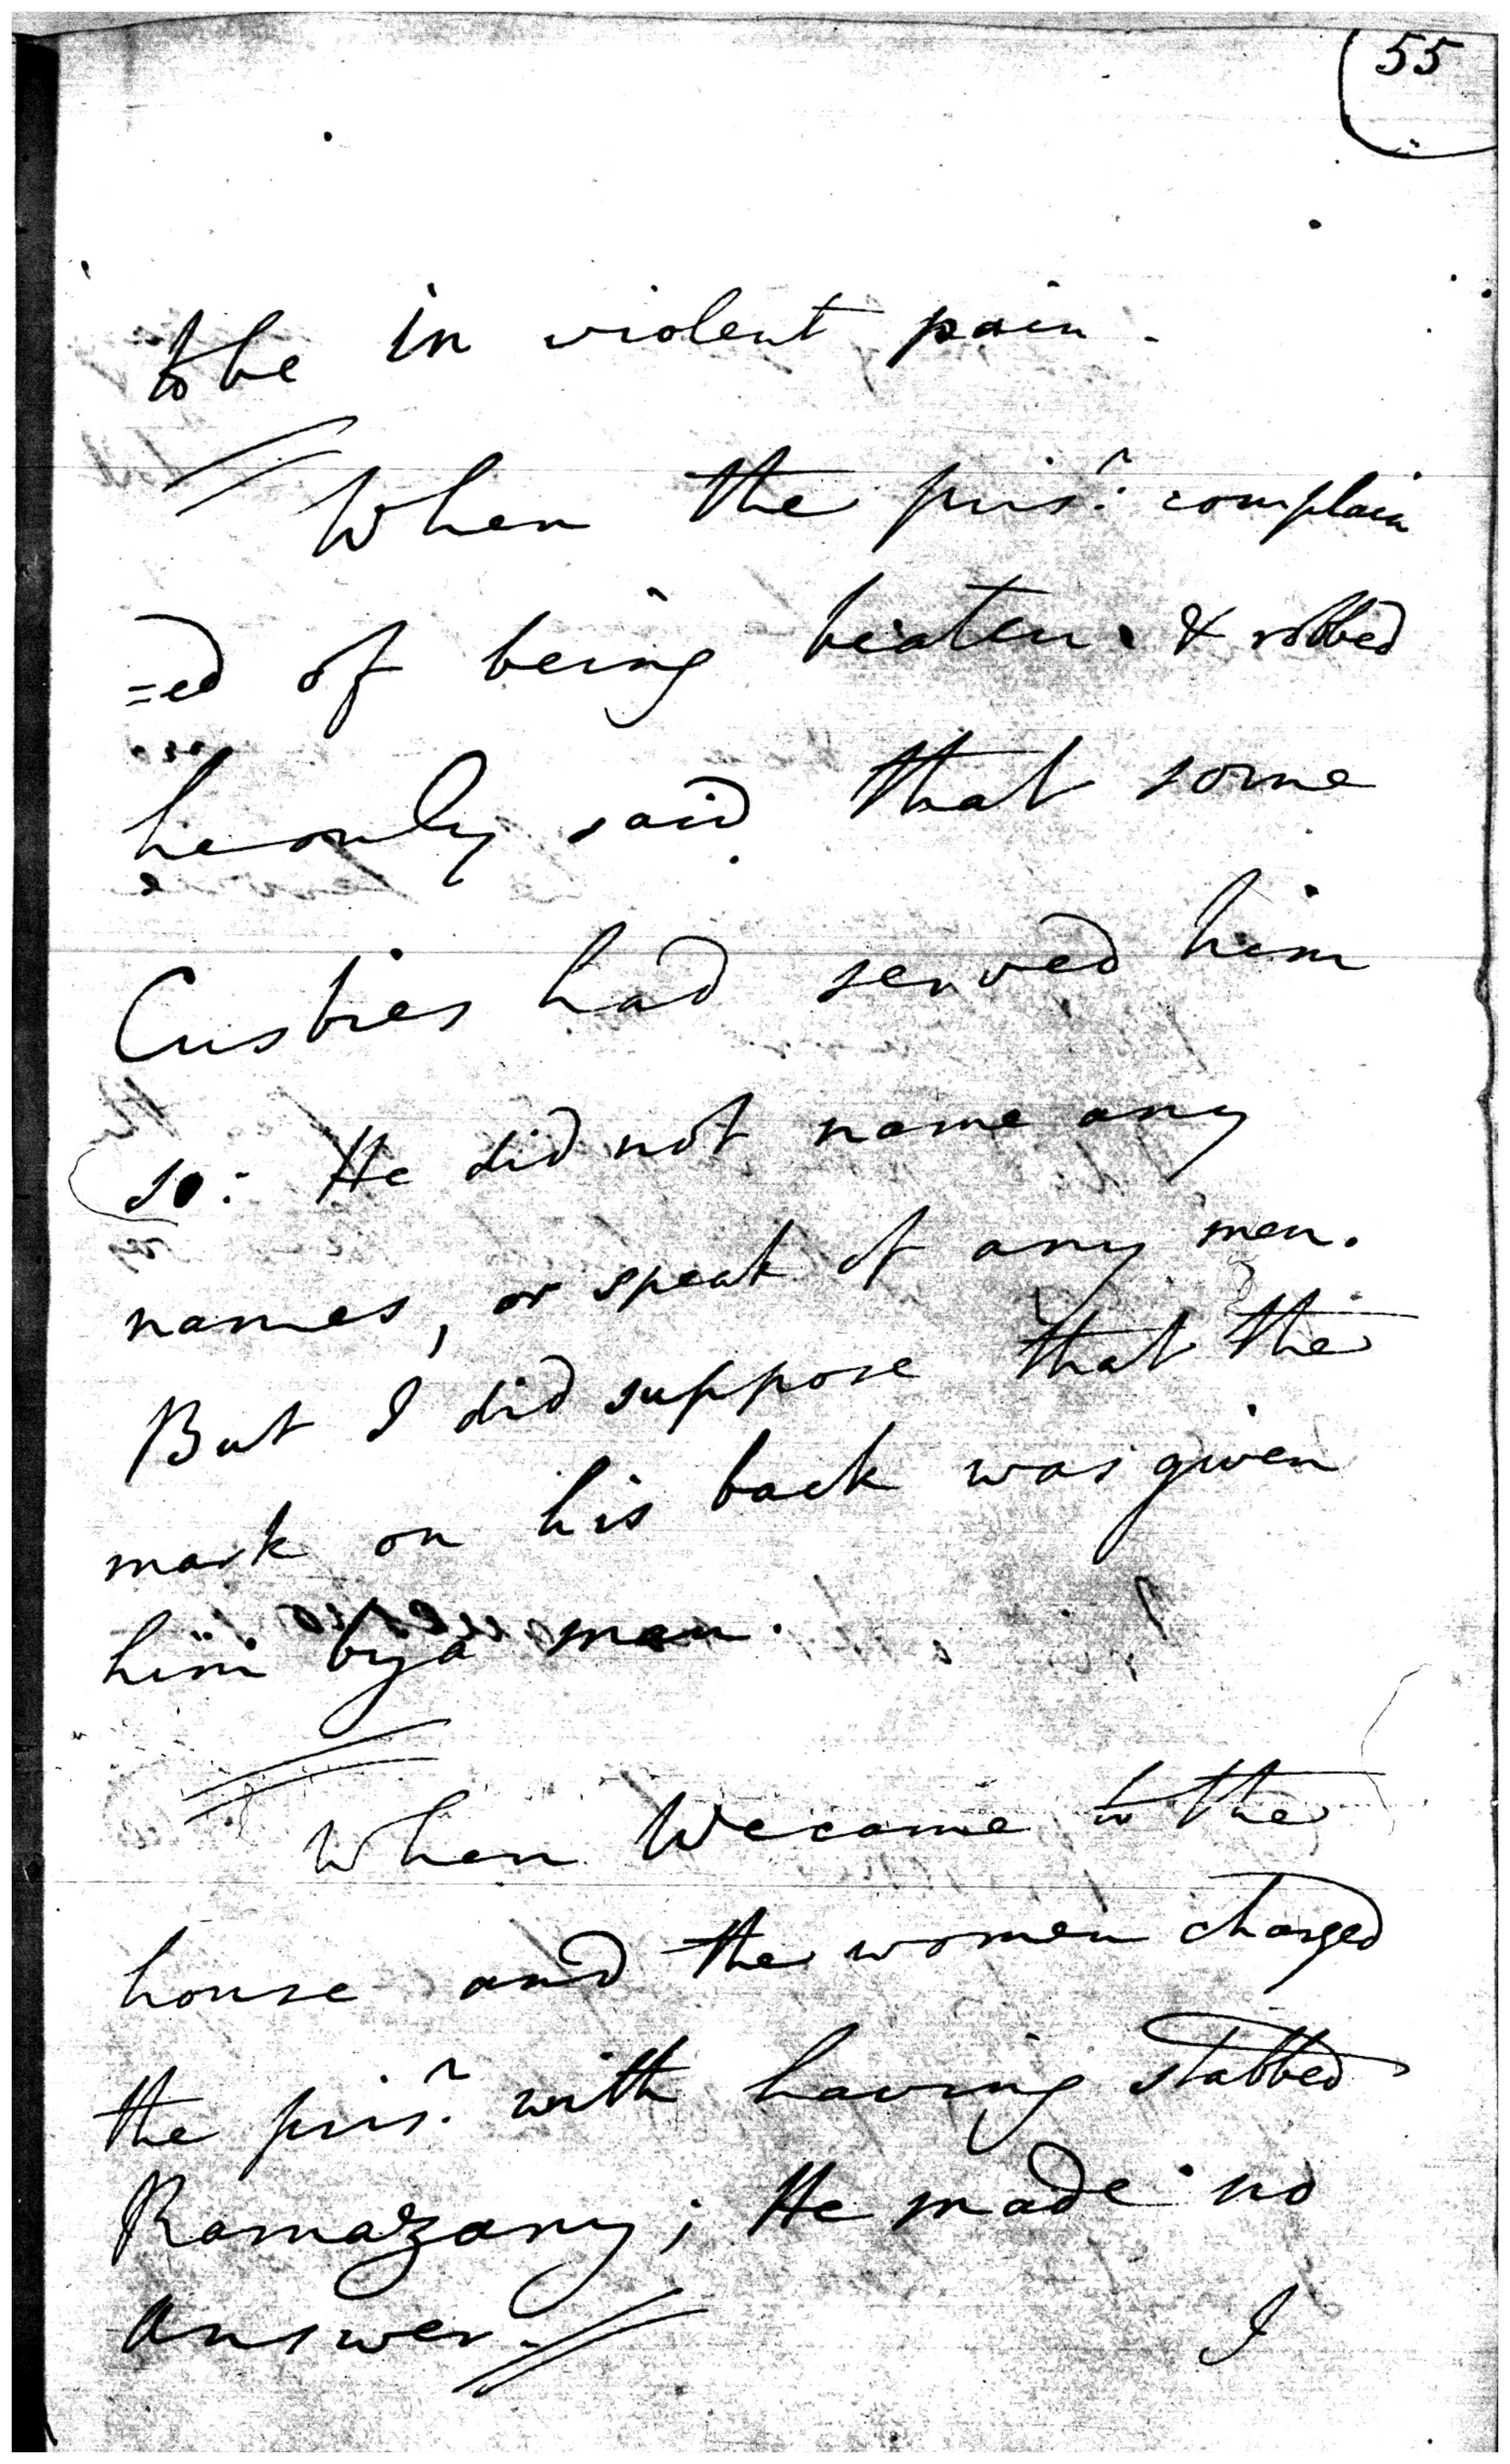 55
to be in violent pain.
When the pris.r complain
=ed of being beaten & robbed
he only said that some
Cusbies had served him
so: He did not name any
names, or speak of any men.
But I did suppose that the
mark on his back was given
him by a man.
When We came to the
house and the women charged
the pris.r with having stabbed
Ramazany; He made no
answer.
I